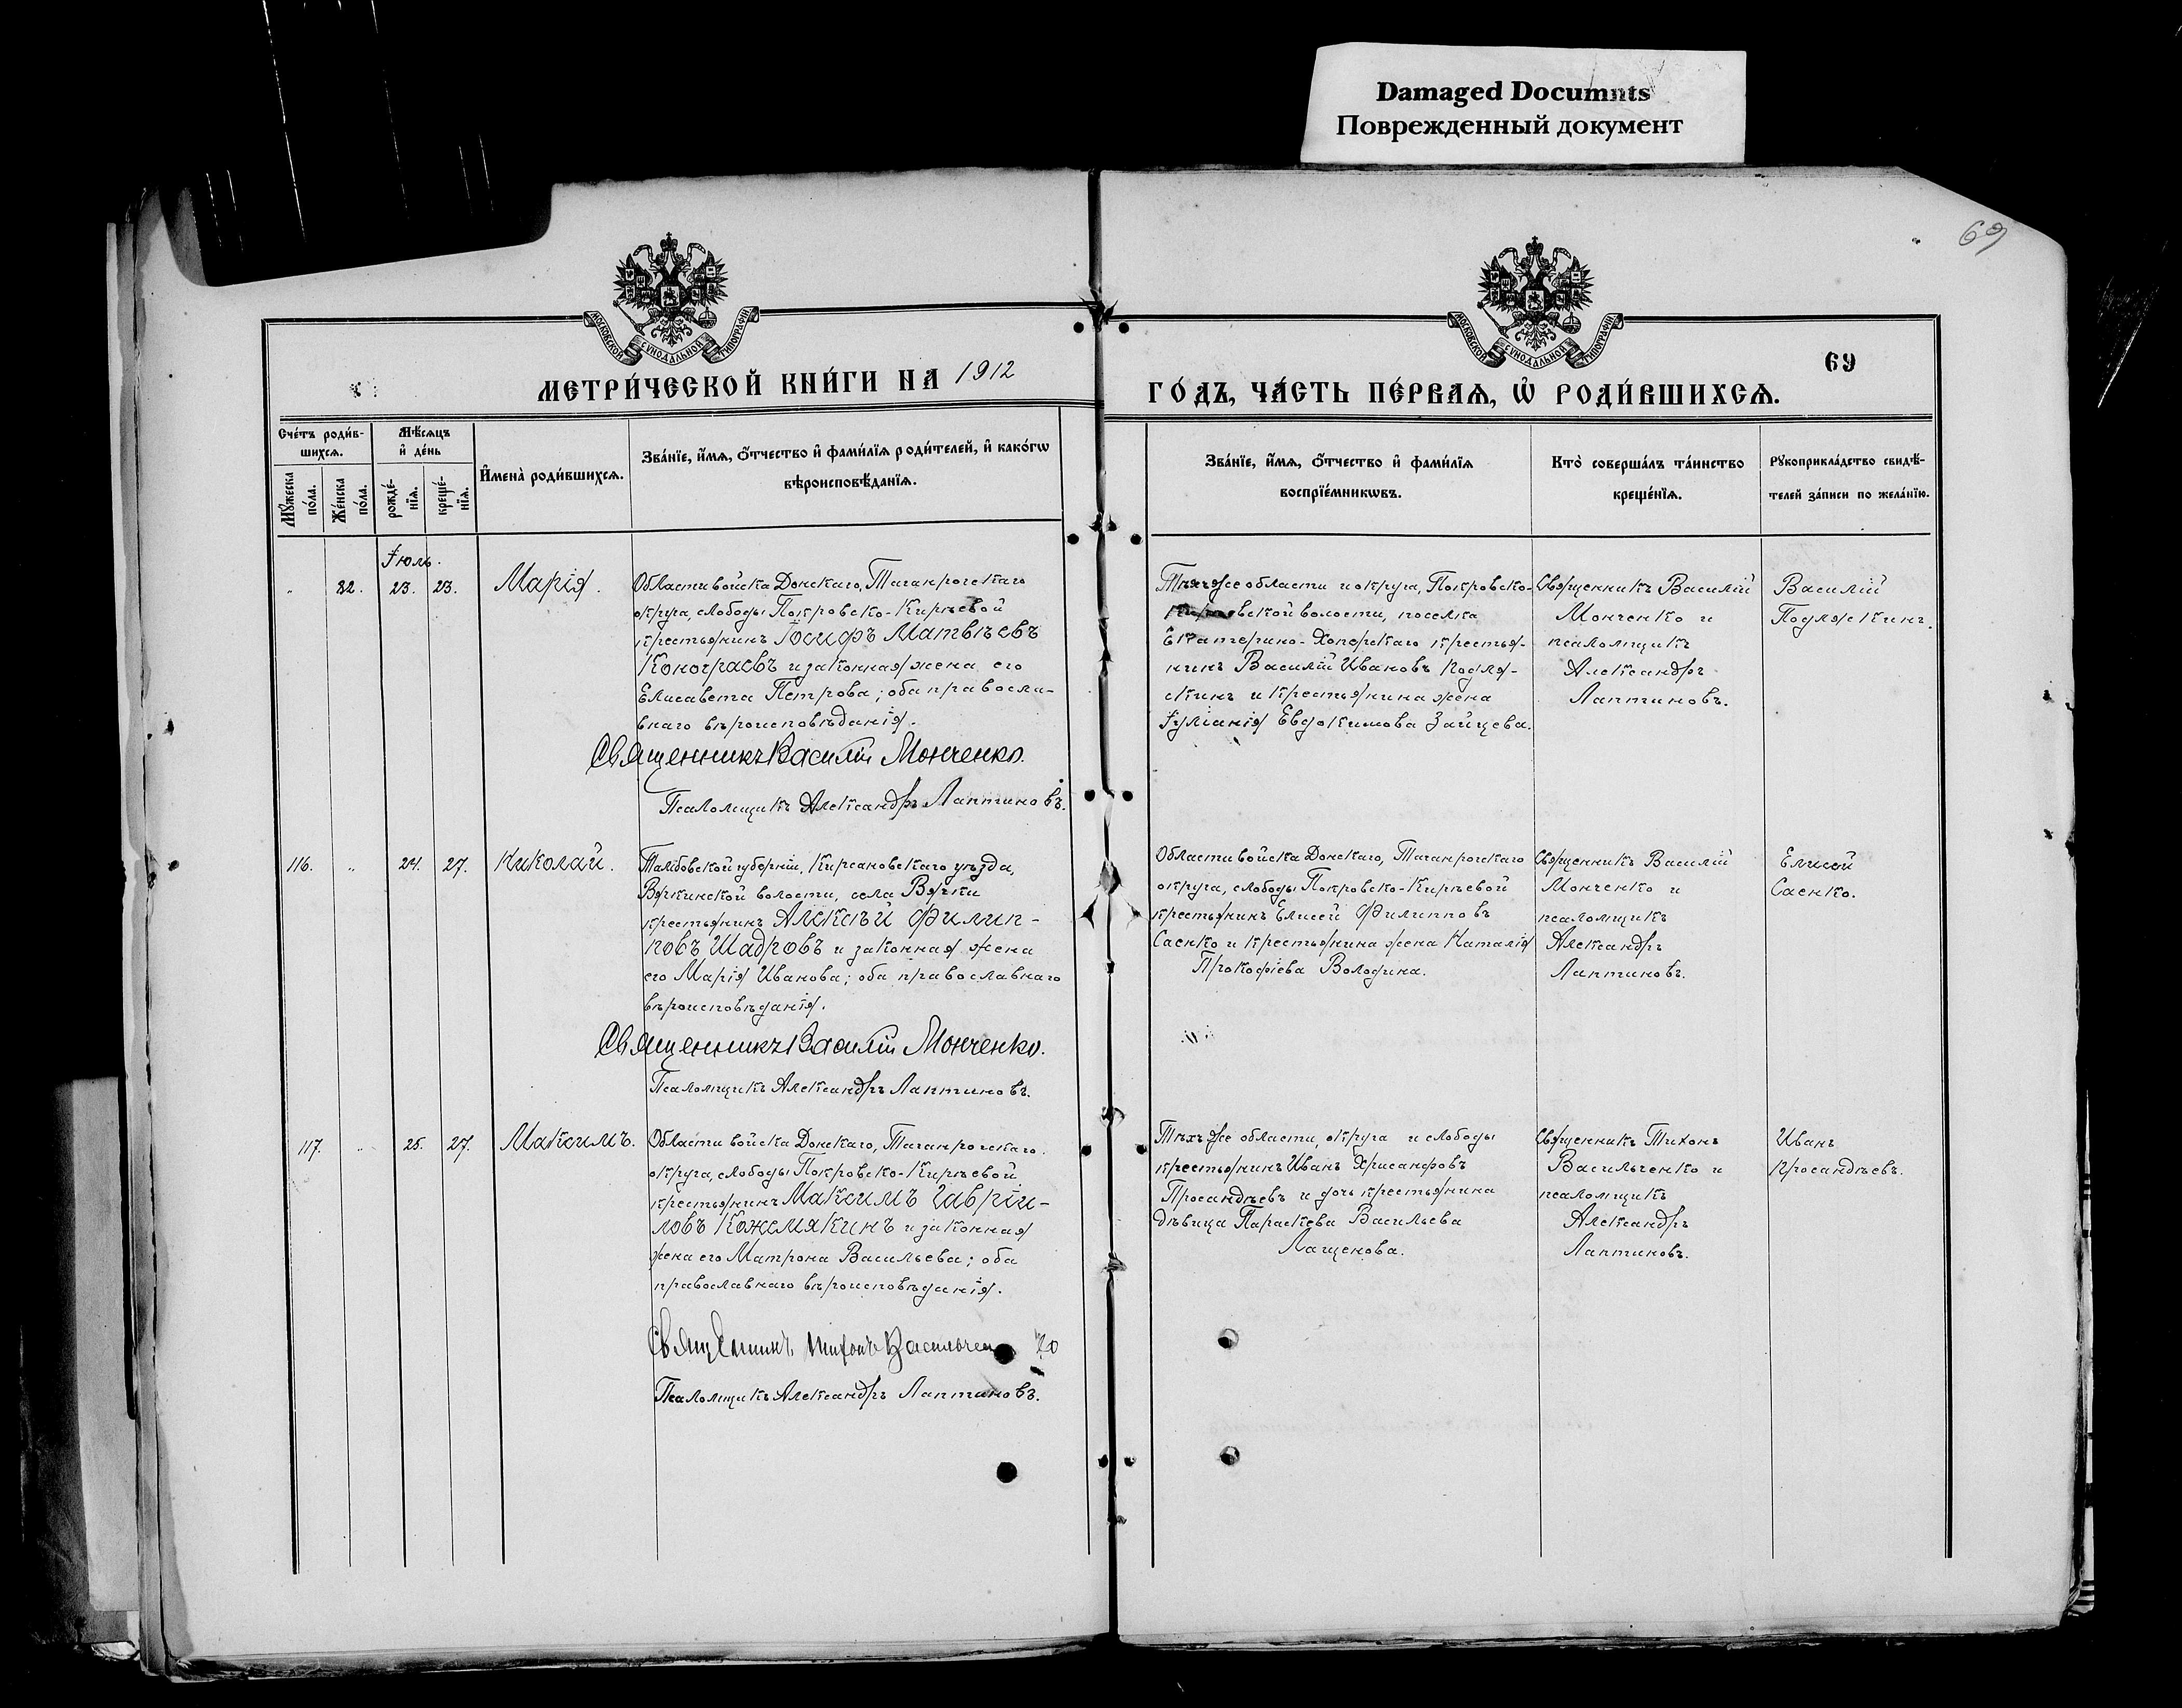 Damaged Documnts
Поврежденный документ
69
МОСКОВСКОЙ СѴНОДАЛЬНОЙ ТИПОГРАФІИ
МОСКОВСКОЙ СѴНОДАЛЬНОЙ ТИПОГРАФІИ
69
МЕТРИ́ЧЕСКОЙ КНИ́ГИ НА 1912
ГО́ДЪ, ЧА́СТЬ ПЕ́РВАѦ, Ѡ҆ РОДИ́ВШИХСѦ.
Сче́тъ роди́в-
шихсѧ.
Мꙋ́жеска
по́ла.
Же́нска
по́ла.
Мѣ́сѧцъ
и҆ де́нь
рожде́-
нїѧ.
креще́-
нїѧ.
И҆мена̀ роди́вшихсѧ.
Зва́нїе, и҆́мѧ, ѻ҆́тчество и҆ фами́лїѧ роди́телей, и҆ како́гѡ
вѣроисповѣ́данїѧ.
Зва́нїе, и҆́мѧ, ѻ҆́тчество и҆ фами́лїѧ
воспрїе́мникѡвъ.
Кто̀ соверша́лъ та́инство
креще́нїѧ.
Рꙋкоприкла́дство свидѣ́-
телей за́писи по жела́нїю.
Іюль.
„ 82. 23. 23. Марія.
Области войска Донскаго, Таганрогскаго
округа, слободы Покровско-Кирѣевой
крестьянинъ Іосифъ Матвѣевъ
Конограевъ и законная жена его
Елисавета Петрова; оба правосла-
внаго вѣроисповѣданія.
Священникъ Василій Монченко.
Псаломщикъ Александръ Лаптиновъ.
Тѣхъ же области и округа, Покровско-
Кирѣевской волости, поселка
Екатерино-Хоперскаго крестья-
нинъ Василій Ивановъ Подля-
скинъ и крестьянина жена
Іуліанія Евдокимова Зайцева.
Священникъ Василій
Монченко и
псаломщикъ
Александръ
Лаптиновъ.
Василій
Подляскинъ.
116. „ 24. 27. Николай.
Тамбовской губерніи, Кирсановскаго уѣзда,
Вячкинской волости, села Вячки
крестьянинъ Алексѣй Филип-
повъ Шадровъ и законная жена
его Марія Иванова; оба православнаго
вѣроисповѣданія.
Священникъ Василій Монченко.
Псаломщикъ Александръ Лаптиновъ.
Области войска Донскаго, Таганрогскаго
округа, слободы Покровско-Кирѣевой
крестьянинъ Елисей Филипповъ
Саенко и крестьянина жена Наталія
Прокофіева Володина.
Священникъ Василій
Монченко и
псаломщикъ
Александръ
Лаптиновъ.
Елисей
Саенко.
117. „ 25. 27. Максимъ.
Области войска Донскаго, Таганрогскаго
округа, слободы Покровско-Кирѣевой
крестьянинъ Максимъ Гавріи-
ловъ Кожемякинъ и законная
жена его Матрона Васильева; оба
православнаго вѣроисповѣданія.
Священникъ Тихонъ Васильченко
Псаломщикъ Александръ Лаптиновъ.
Тѣхъ же области, округа и слободы
крестьянинъ Иванъ Хрисанфовъ
Просандѣевъ и дочь крестьянина
дѣвица Параскева Васильева
Лащенова.
Священникъ Тихонъ
Васильченко и
псаломщикъ
Александръ
Лаптиновъ.
Иванъ
Просандѣевъ.